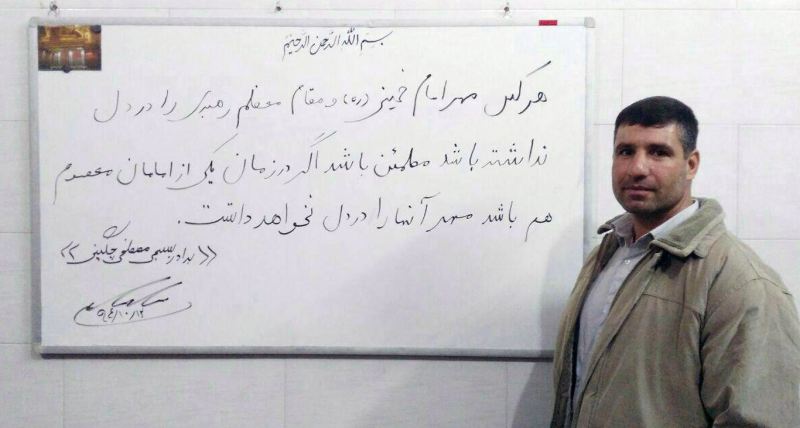 بسم الله الرحمن الرحیم
هر کس مهر امام خمینی (ره) و مقام معظم رهبری را در دل
نداشته باشد مطمئن باشد اگر در زمان یکی از امامان معصوم
هم باشد مهر آنها را در دل نخواهد داشت.
«برادر بسیجی مصطفی چگینی»
۹۴/۱۰/۱۲